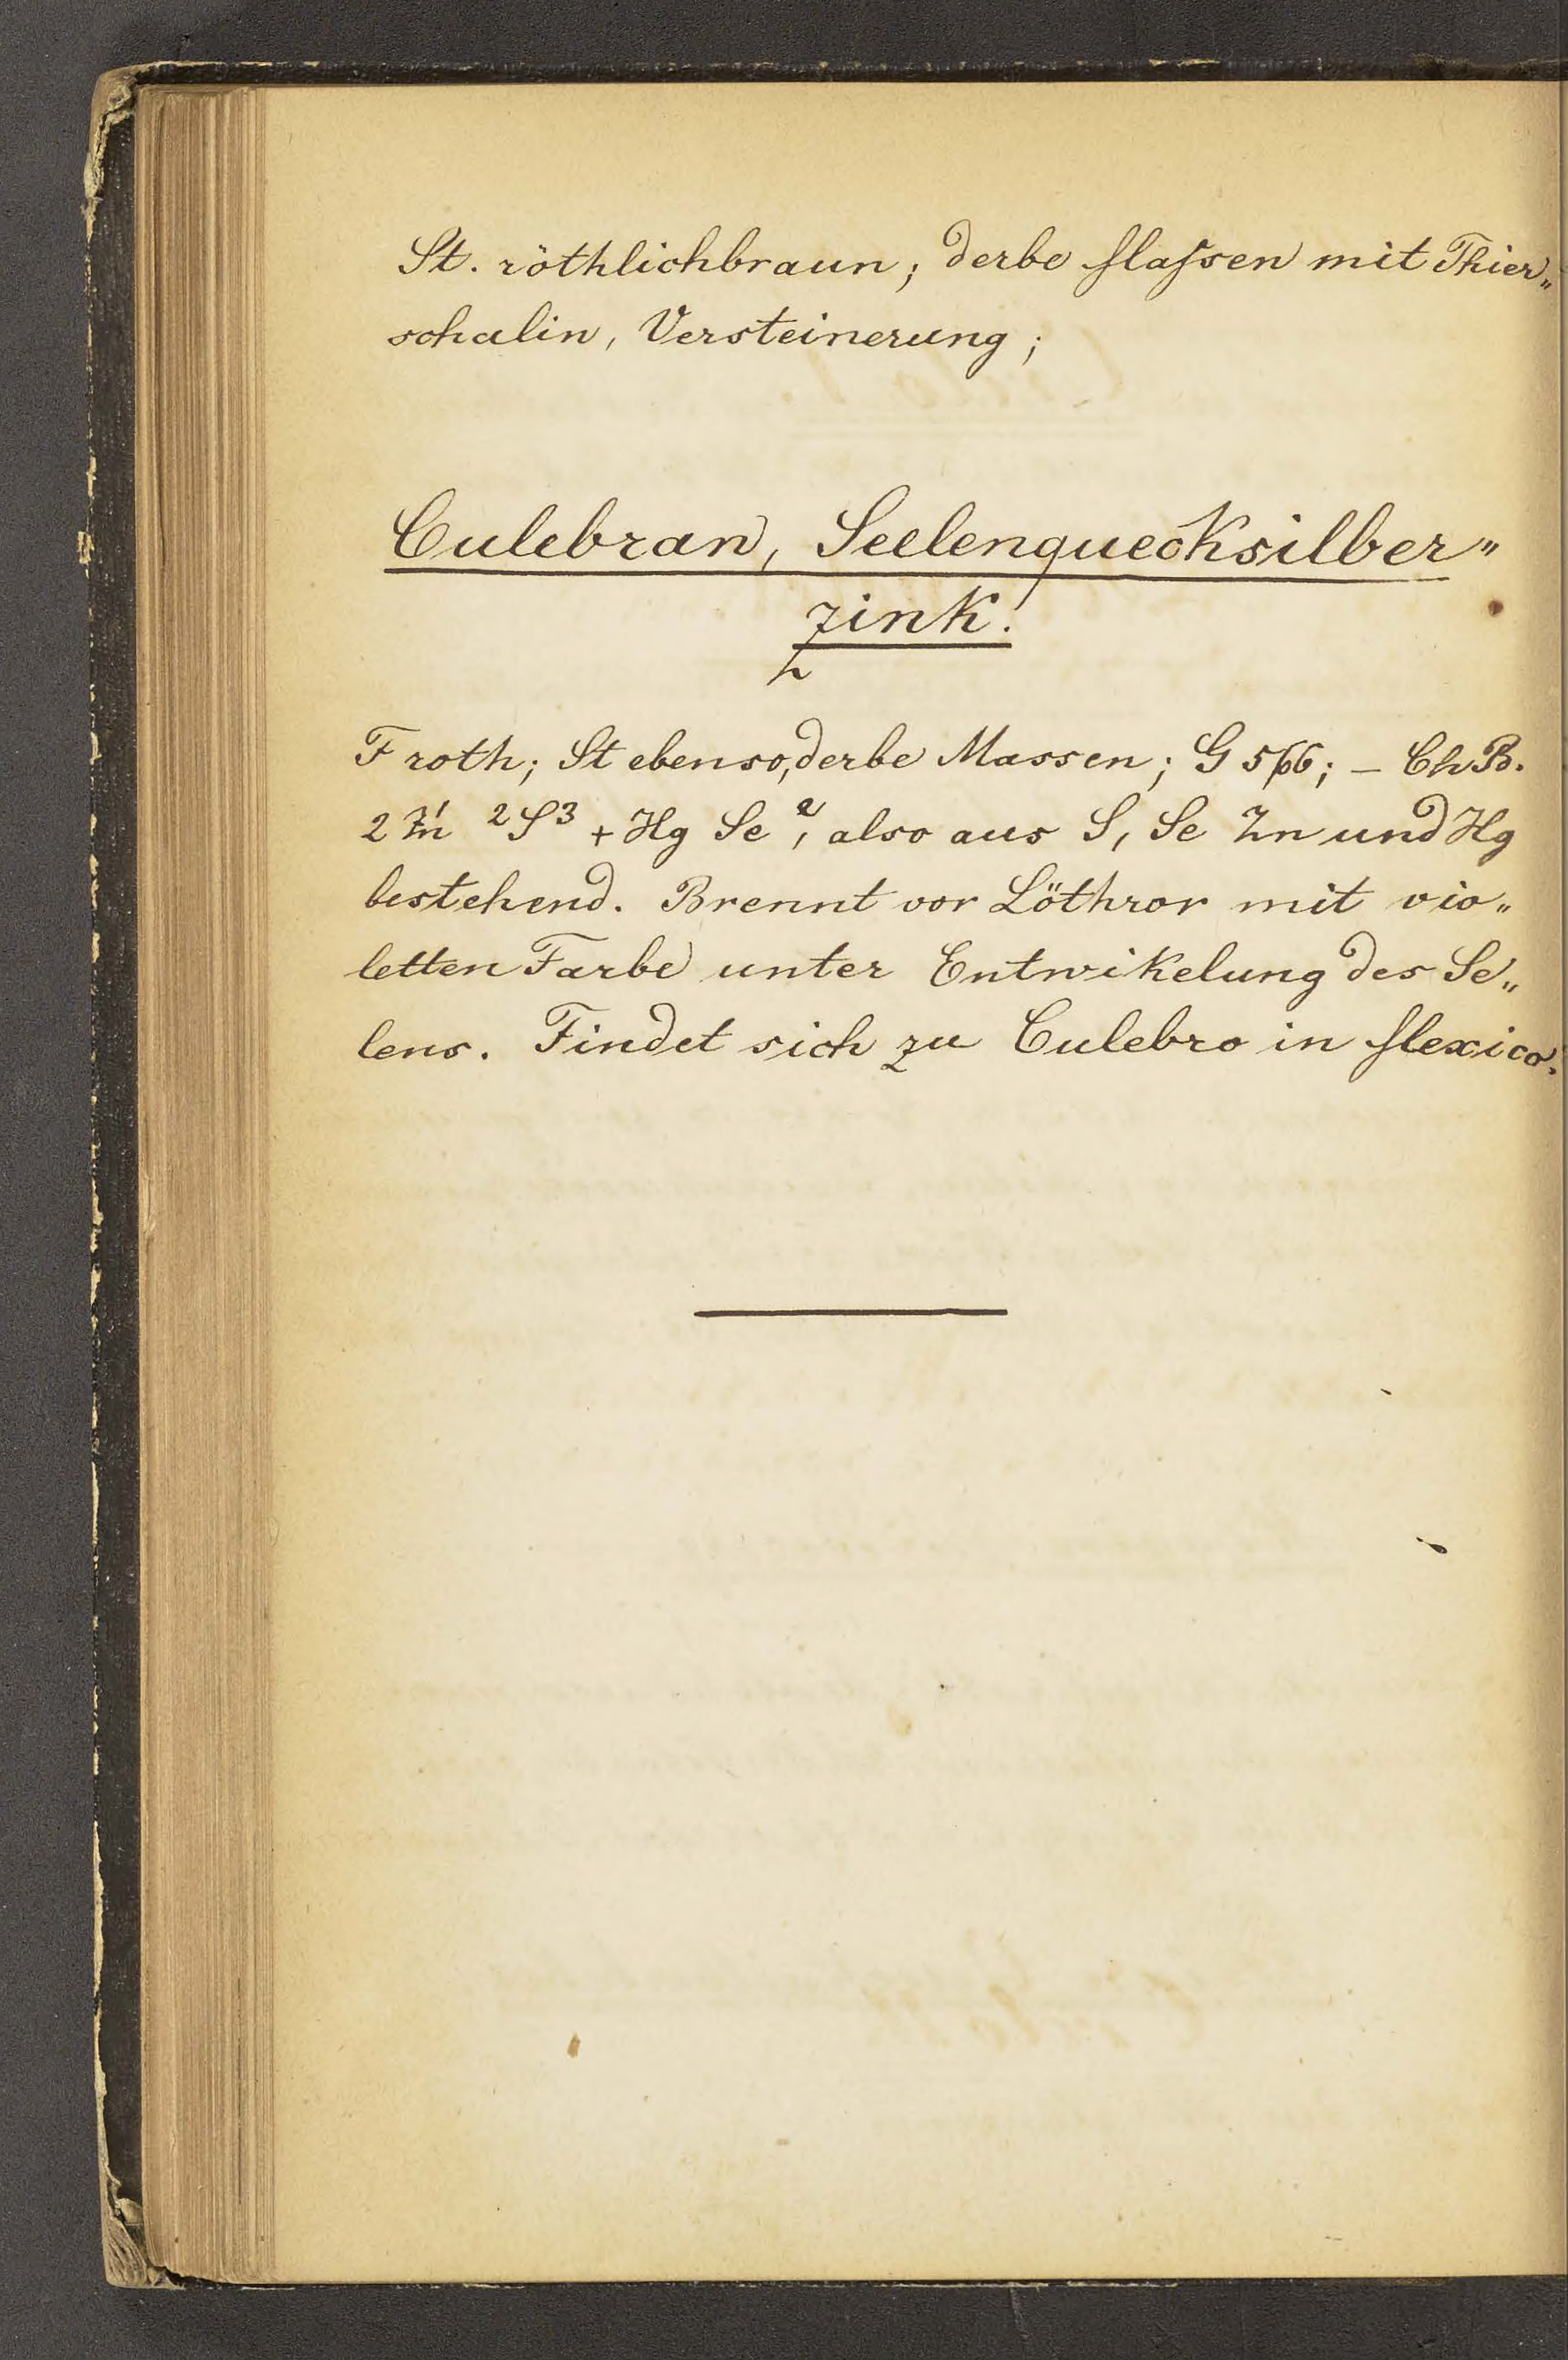 St. röthlichbraun; derbe Maſsen mit Thier„
schalin, Versteinerung;
Culebran, Seelenquecksilber„
zink!
F roth; St ebenso, derbe Massen; G 5,66; – Ch B.
2 Zn 2S3 + Hg Se2, also aus S, Se Zn und Hg
bestehend. Brennt vor Löthror mit vio„
letten Farbe unter Entwikelung des Se„
lens. Findet sich zu Culebro in Mexico.